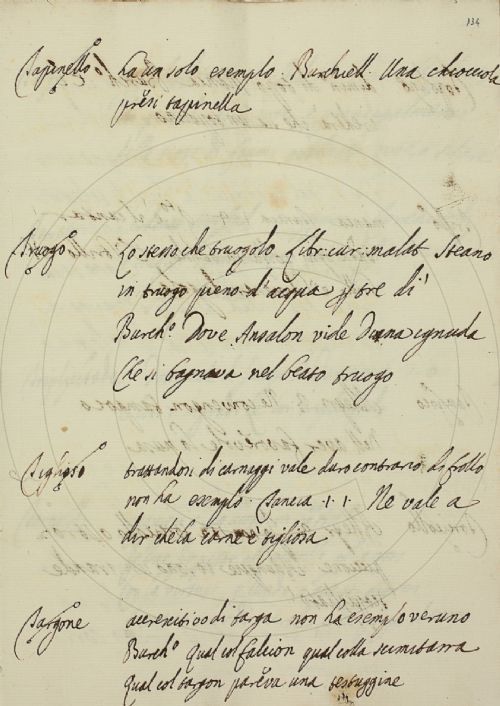 134
Tapinello ha un solo esemplo. Burchiell. Una chiocciola
presi tapinella
Truogo Lo stesso che truogolo. Libr: cur: malat. Steano
in truogo pieno d'acqua p tre dì
Burch.º Dove Ansalon vide Diana ignuda
Che si bagnava nel beato truogo
Tiglioso trattandosi di carnaggi vale duro contrario di frollo
non ha esemplo. Bancia. 1. 1. Ne vale a
dir che la carne è tigliosa
Targone accrescitivo di targa non ha esemplo veruno
Burch.º qual col falcion qual colla scimitarra
qual col targon pareva una testuggine